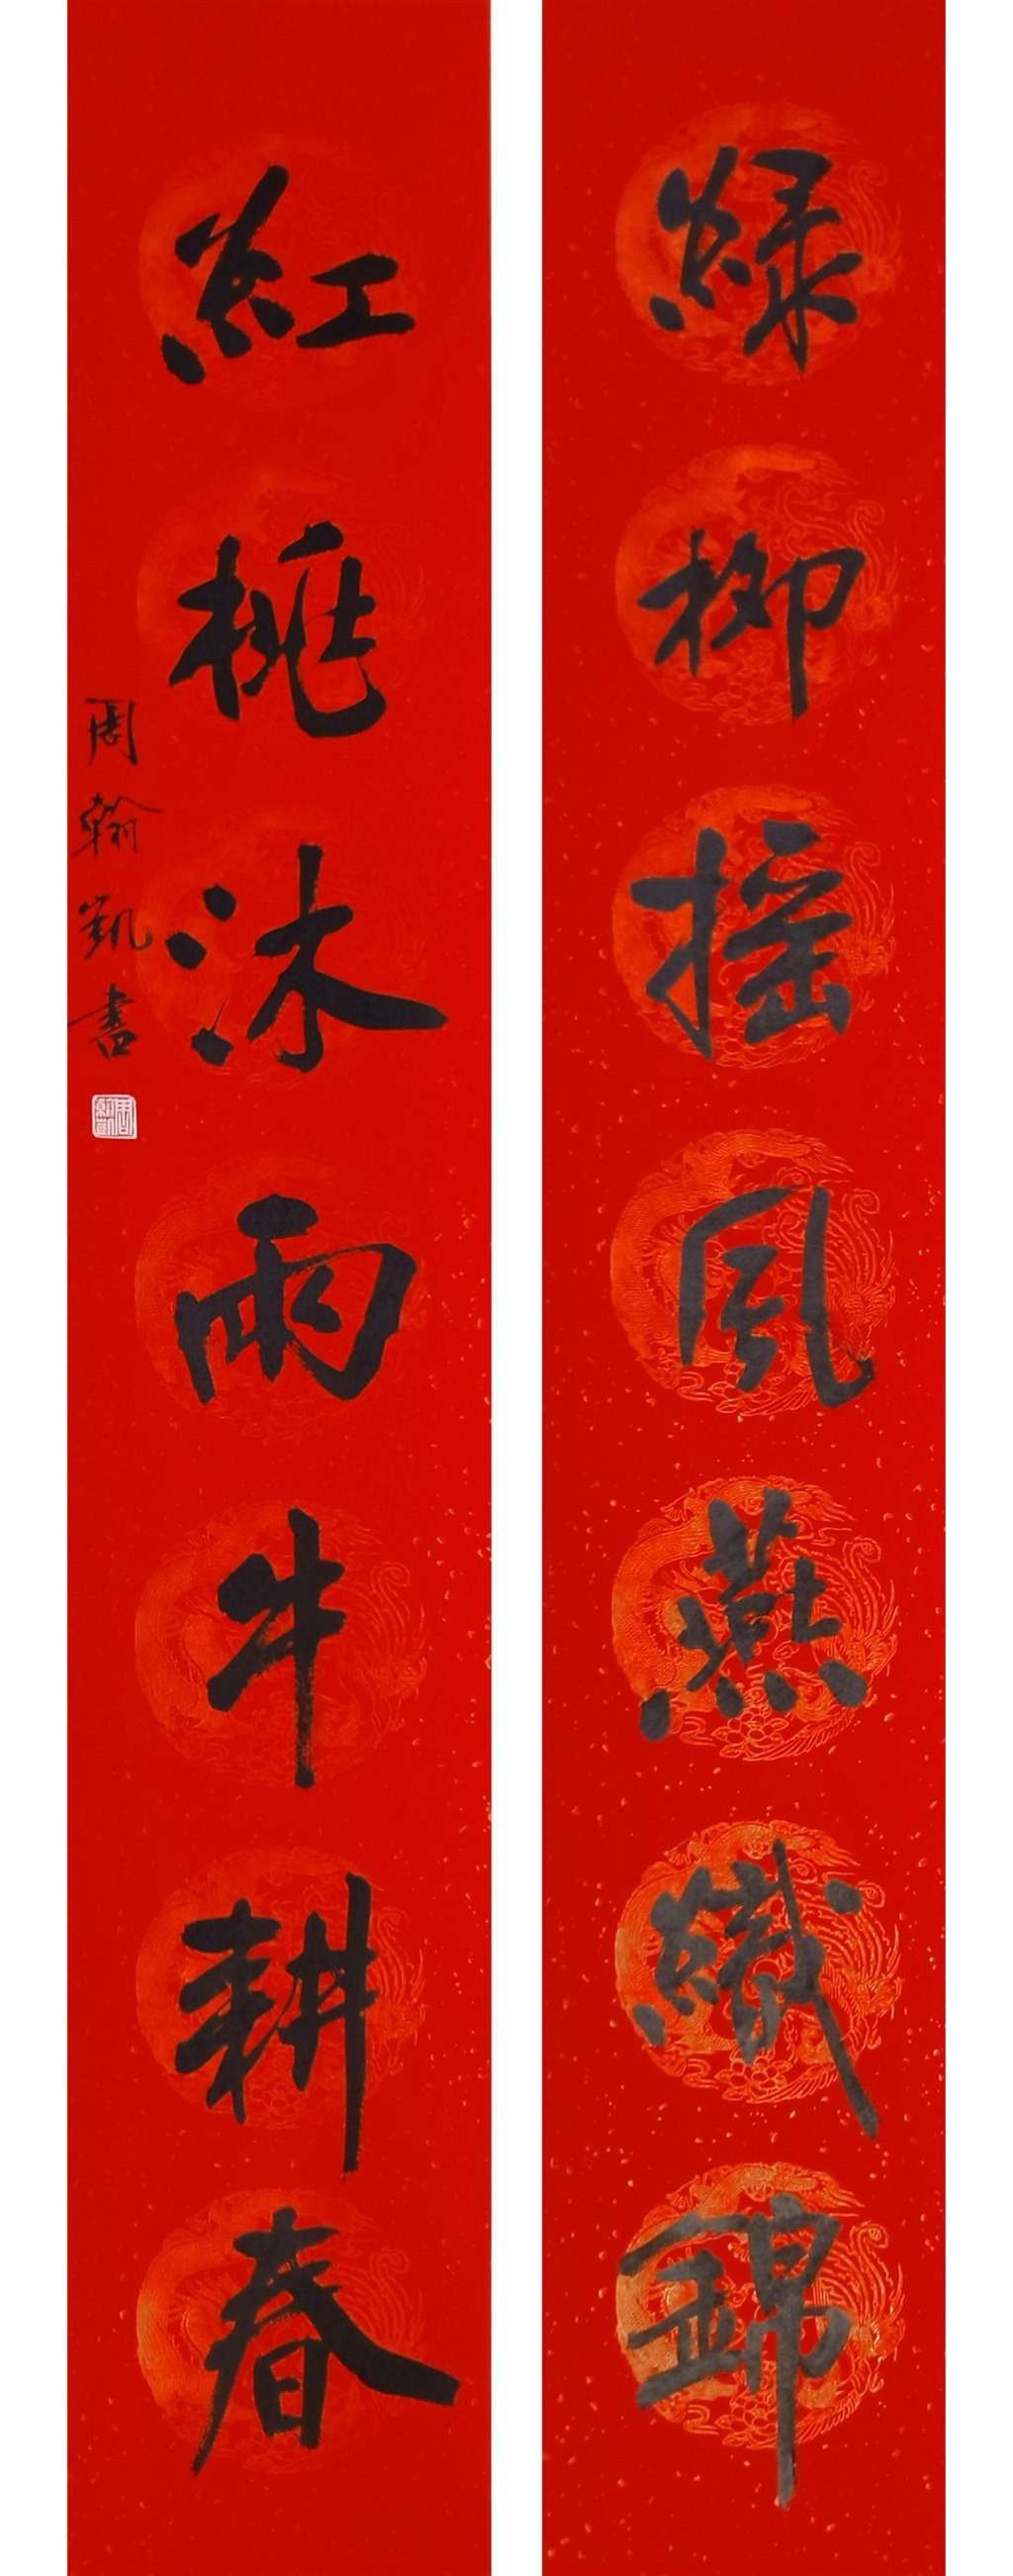 綠柳摇風燕織錦
紅桃沐雨牛耕春
周翰凱書
周翰凱